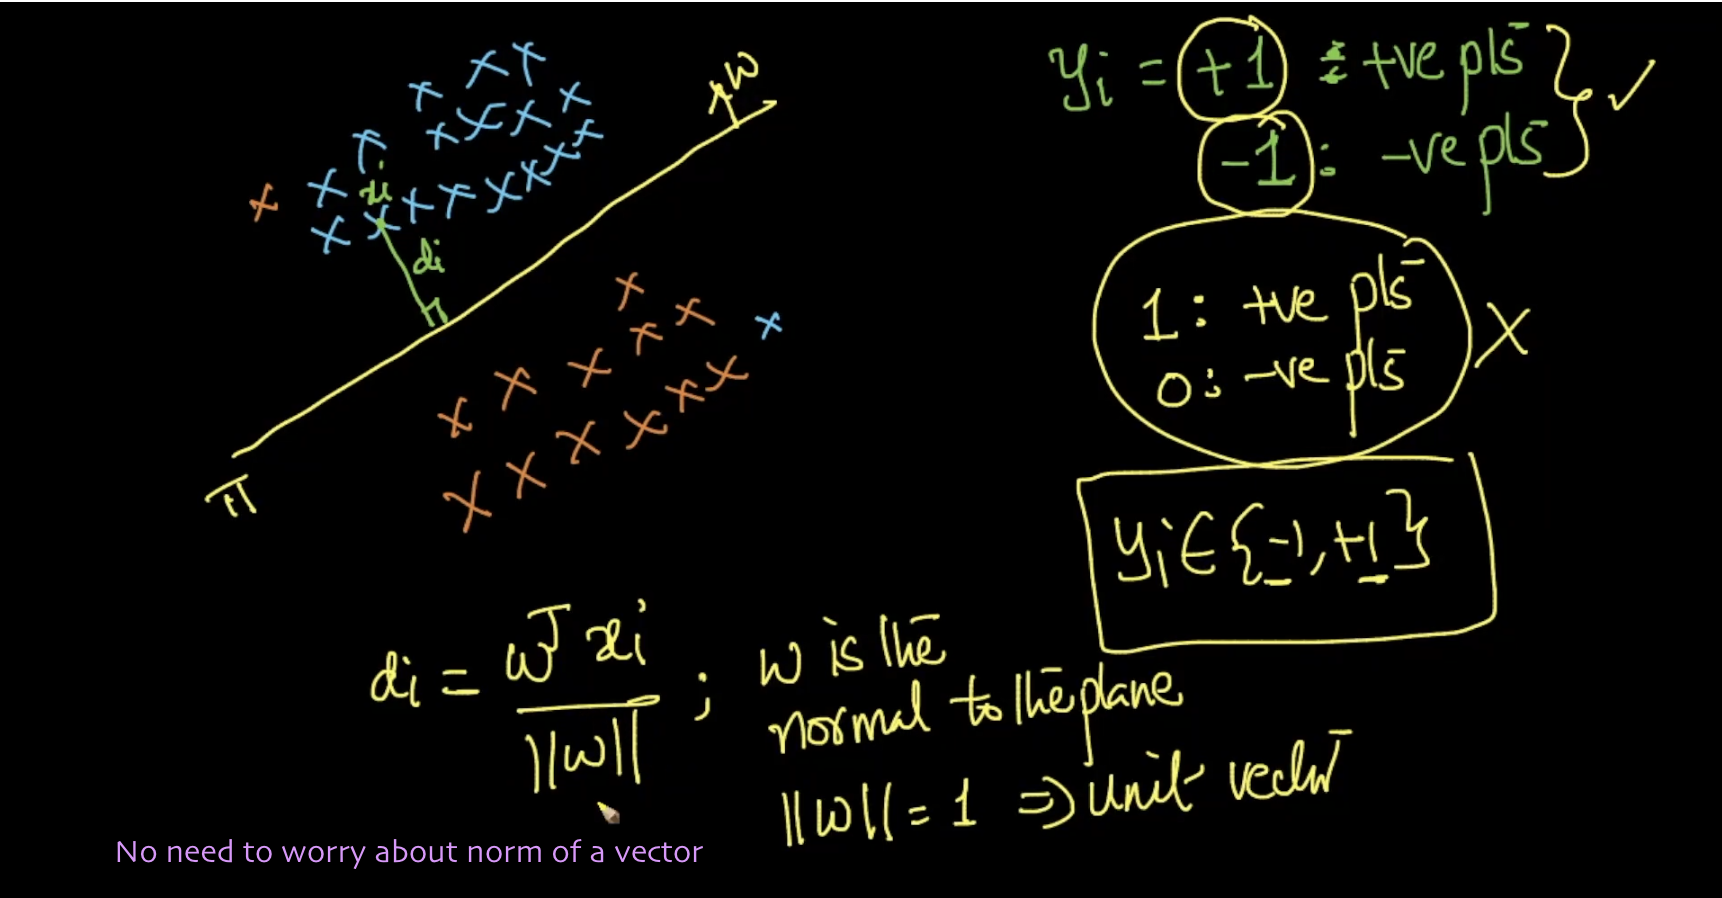 w
yᵢ = +1 : +ve pts
-1 : -ve pts
xᵢ
dᵢ
1 : +ve pts
0 : -ve pts
π
yᵢ ∈ {-1, +1}
dᵢ = wᵀxᵢ / ||w|| ; w is the
normal to the plane
||w|| = 1 ⇒ unit vector
No need to worry about norm of a vector